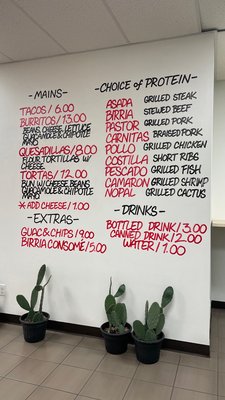 -MAINS-
TACOS / 6.00
BURRITOS / 13.00
BEANS, CHEESE, LETTUCE
GUACAMOLE & CHIPOTLE
MAYO
QUESADILLAS / 8.00
FLOUR TORTILLAS W/
CHEESE
TORTAS / 12.00
BUN W/ CHEESE, BEANS
GUACAMOLE & CHIPOTLE
MAYO
* ADD CHEESE / 1.00
-EXTRAS-
GUAC & CHIPS / 9.00
BIRRIA CONSOMÉ / 5.00
-CHOICE of PROTEIN-
ASADA GRILLED STEAK
BIRRIA STEWED BEEF
PASTOR GRILLED PORK
CARNITAS BRAISED PORK
POLLO GRILLED CHICKEN
COSTILLA SHORT RIBS
PESCADO GRILLED FISH
CAMARON GRILLED SHRIMP
NOPAL GRILLED CACTUS
-DRINKS-
BOTTLED DRINK / 3.00
CANNED DRINK / 2.00
WATER / 1.00